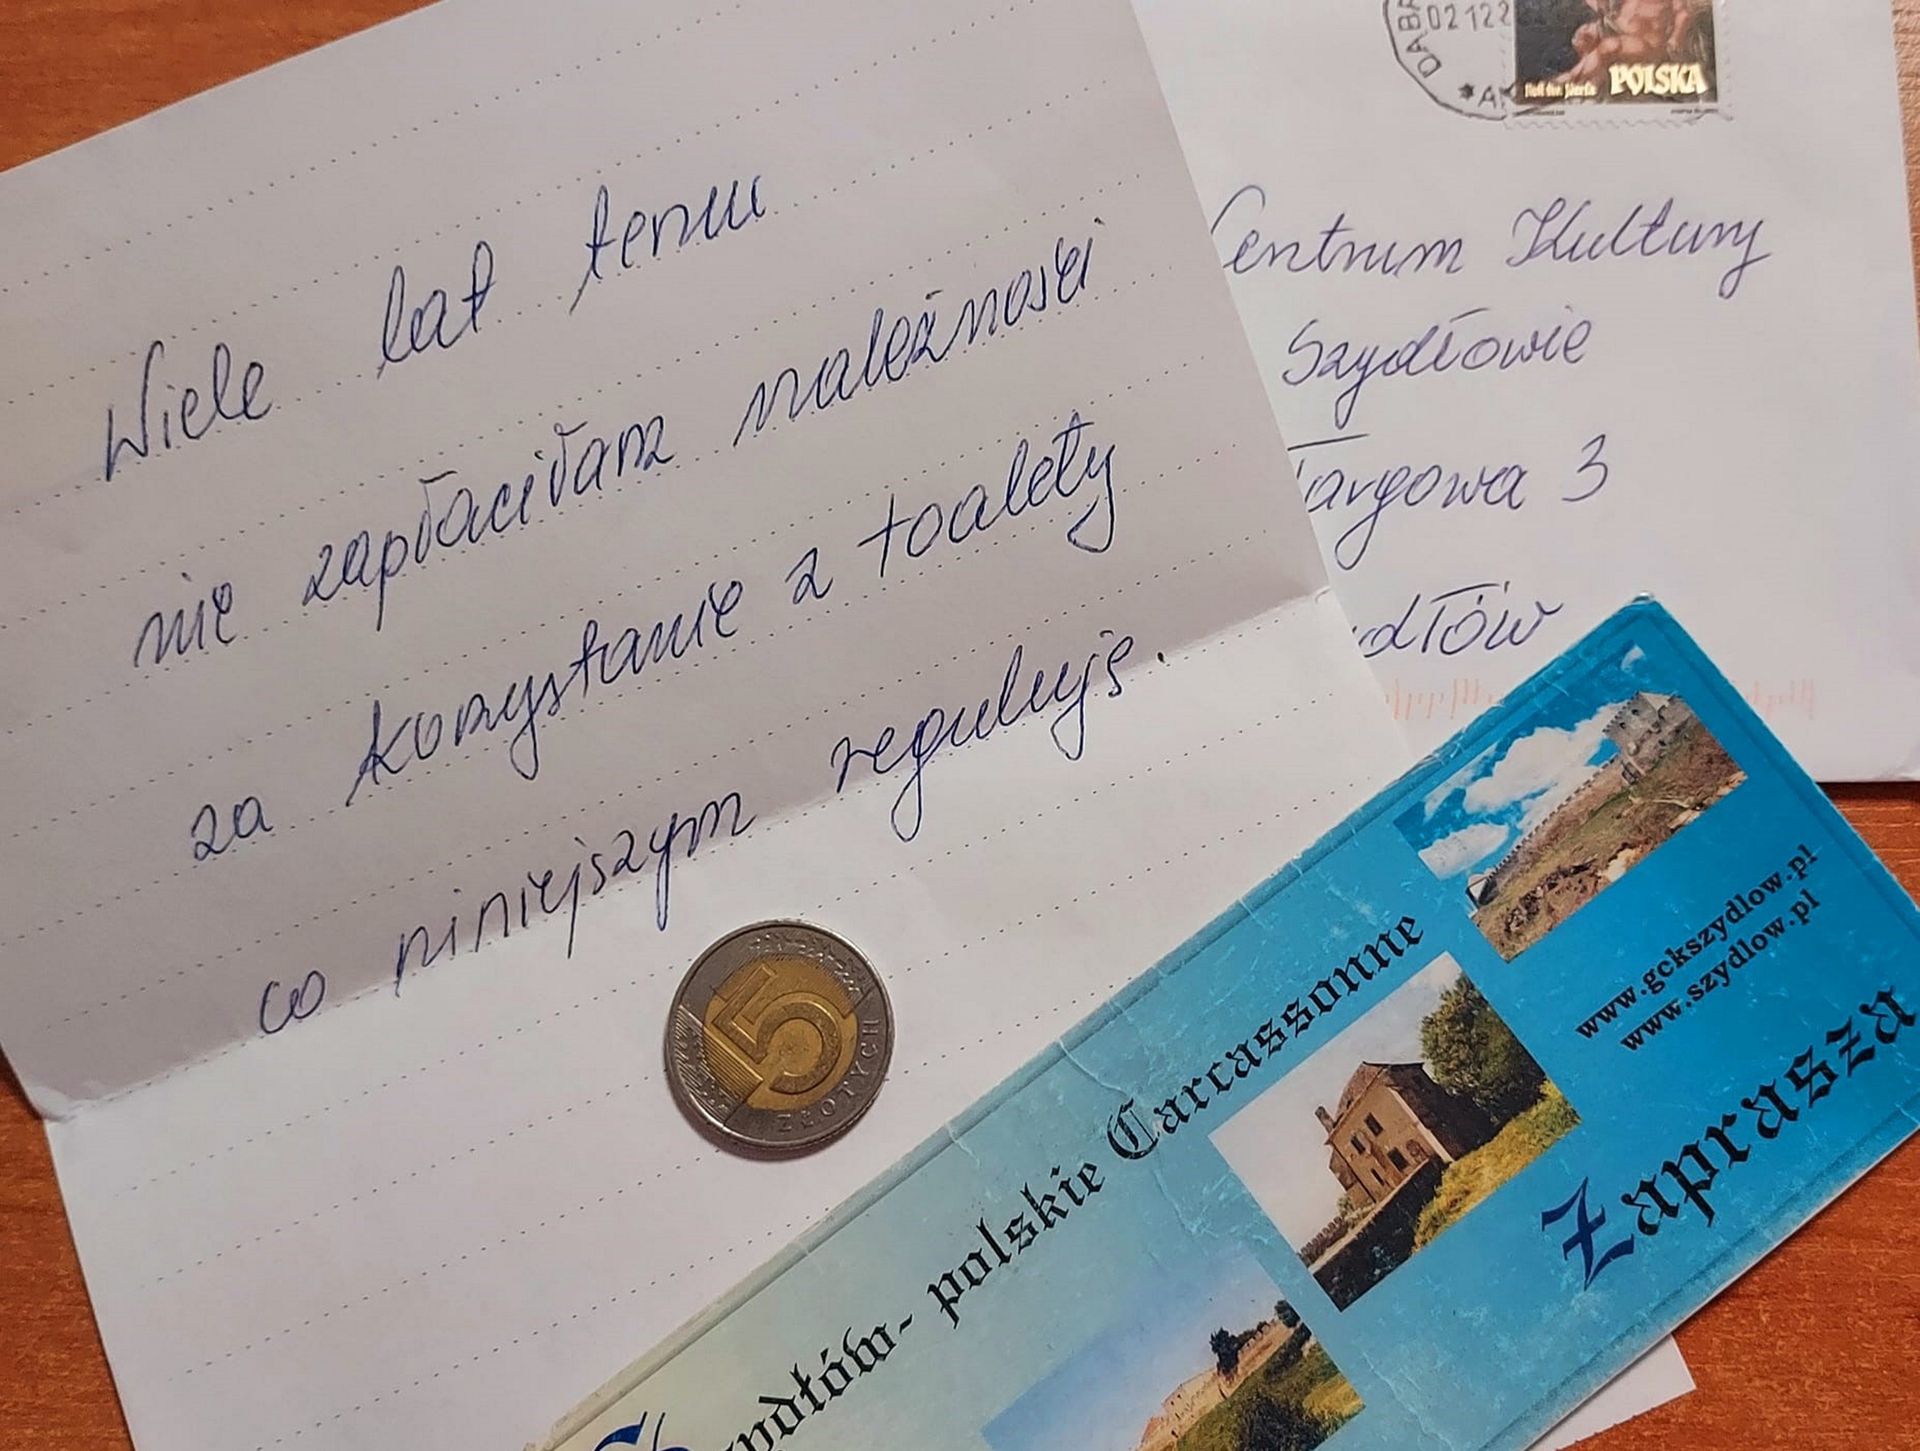 Wiele lat temu
nie zapłaciłam należności
za korzystanie z toalety
co niniejszym reguluję.
02 12 2
POLSKA
Centrum Kultury
Szydłowie
Targowa 3
dłów
5
ZŁOTYCH
ydłów- polskie Carcassonne
www.gckszydlow.pl
www.szydlow.pl
Zaprasza